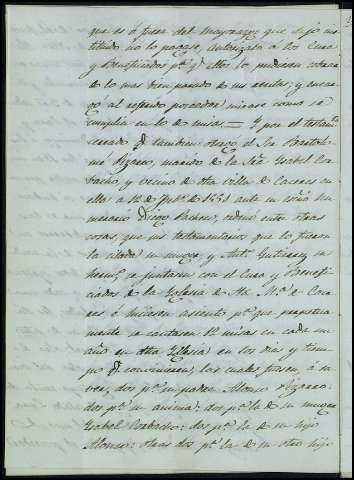 que es ó fuera del Mayorazgo que dejó ins-
tituido no lo pagase, autorizaba a los Curas
y Beneficiados pª q ellos lo pudieran cobrar
de lo mas bien parado de sus rentas; y encar-
gó al referido poseedor mirase como se
cumplia en lo de misas = Y por el testamto
cerrado q tambien otorgó el Sor Bartolo-
mé Rizano, marido de la Sra Ysabel Cor-
bacho y vecino de dha villa de Caceres en
ella a 12 de de 1551 ante su esno
Diego Pacheco, ordenó entre otras
cosas, que sus testamentarios que lo fueran
la citada su muger y Antº Gutierrez su
hermº se juntaran con el Cura y Benefi-
ciados de la Yglesia de Sta Mª de Cace-
res é hiciesen asiento pª que perpetua-
mente se cantasen 12 misas en cada un
año en dha Yglesia en los dias y tiem-
po q convinieren, las cuales fuesen, á sa-
ver; dos pr su padre Alonso
dos pr su anima: dos pr la de su muger
Ysabel Corbacho: dos pr la de su hijo
Alonso: otras dos pr la de su otro hijo